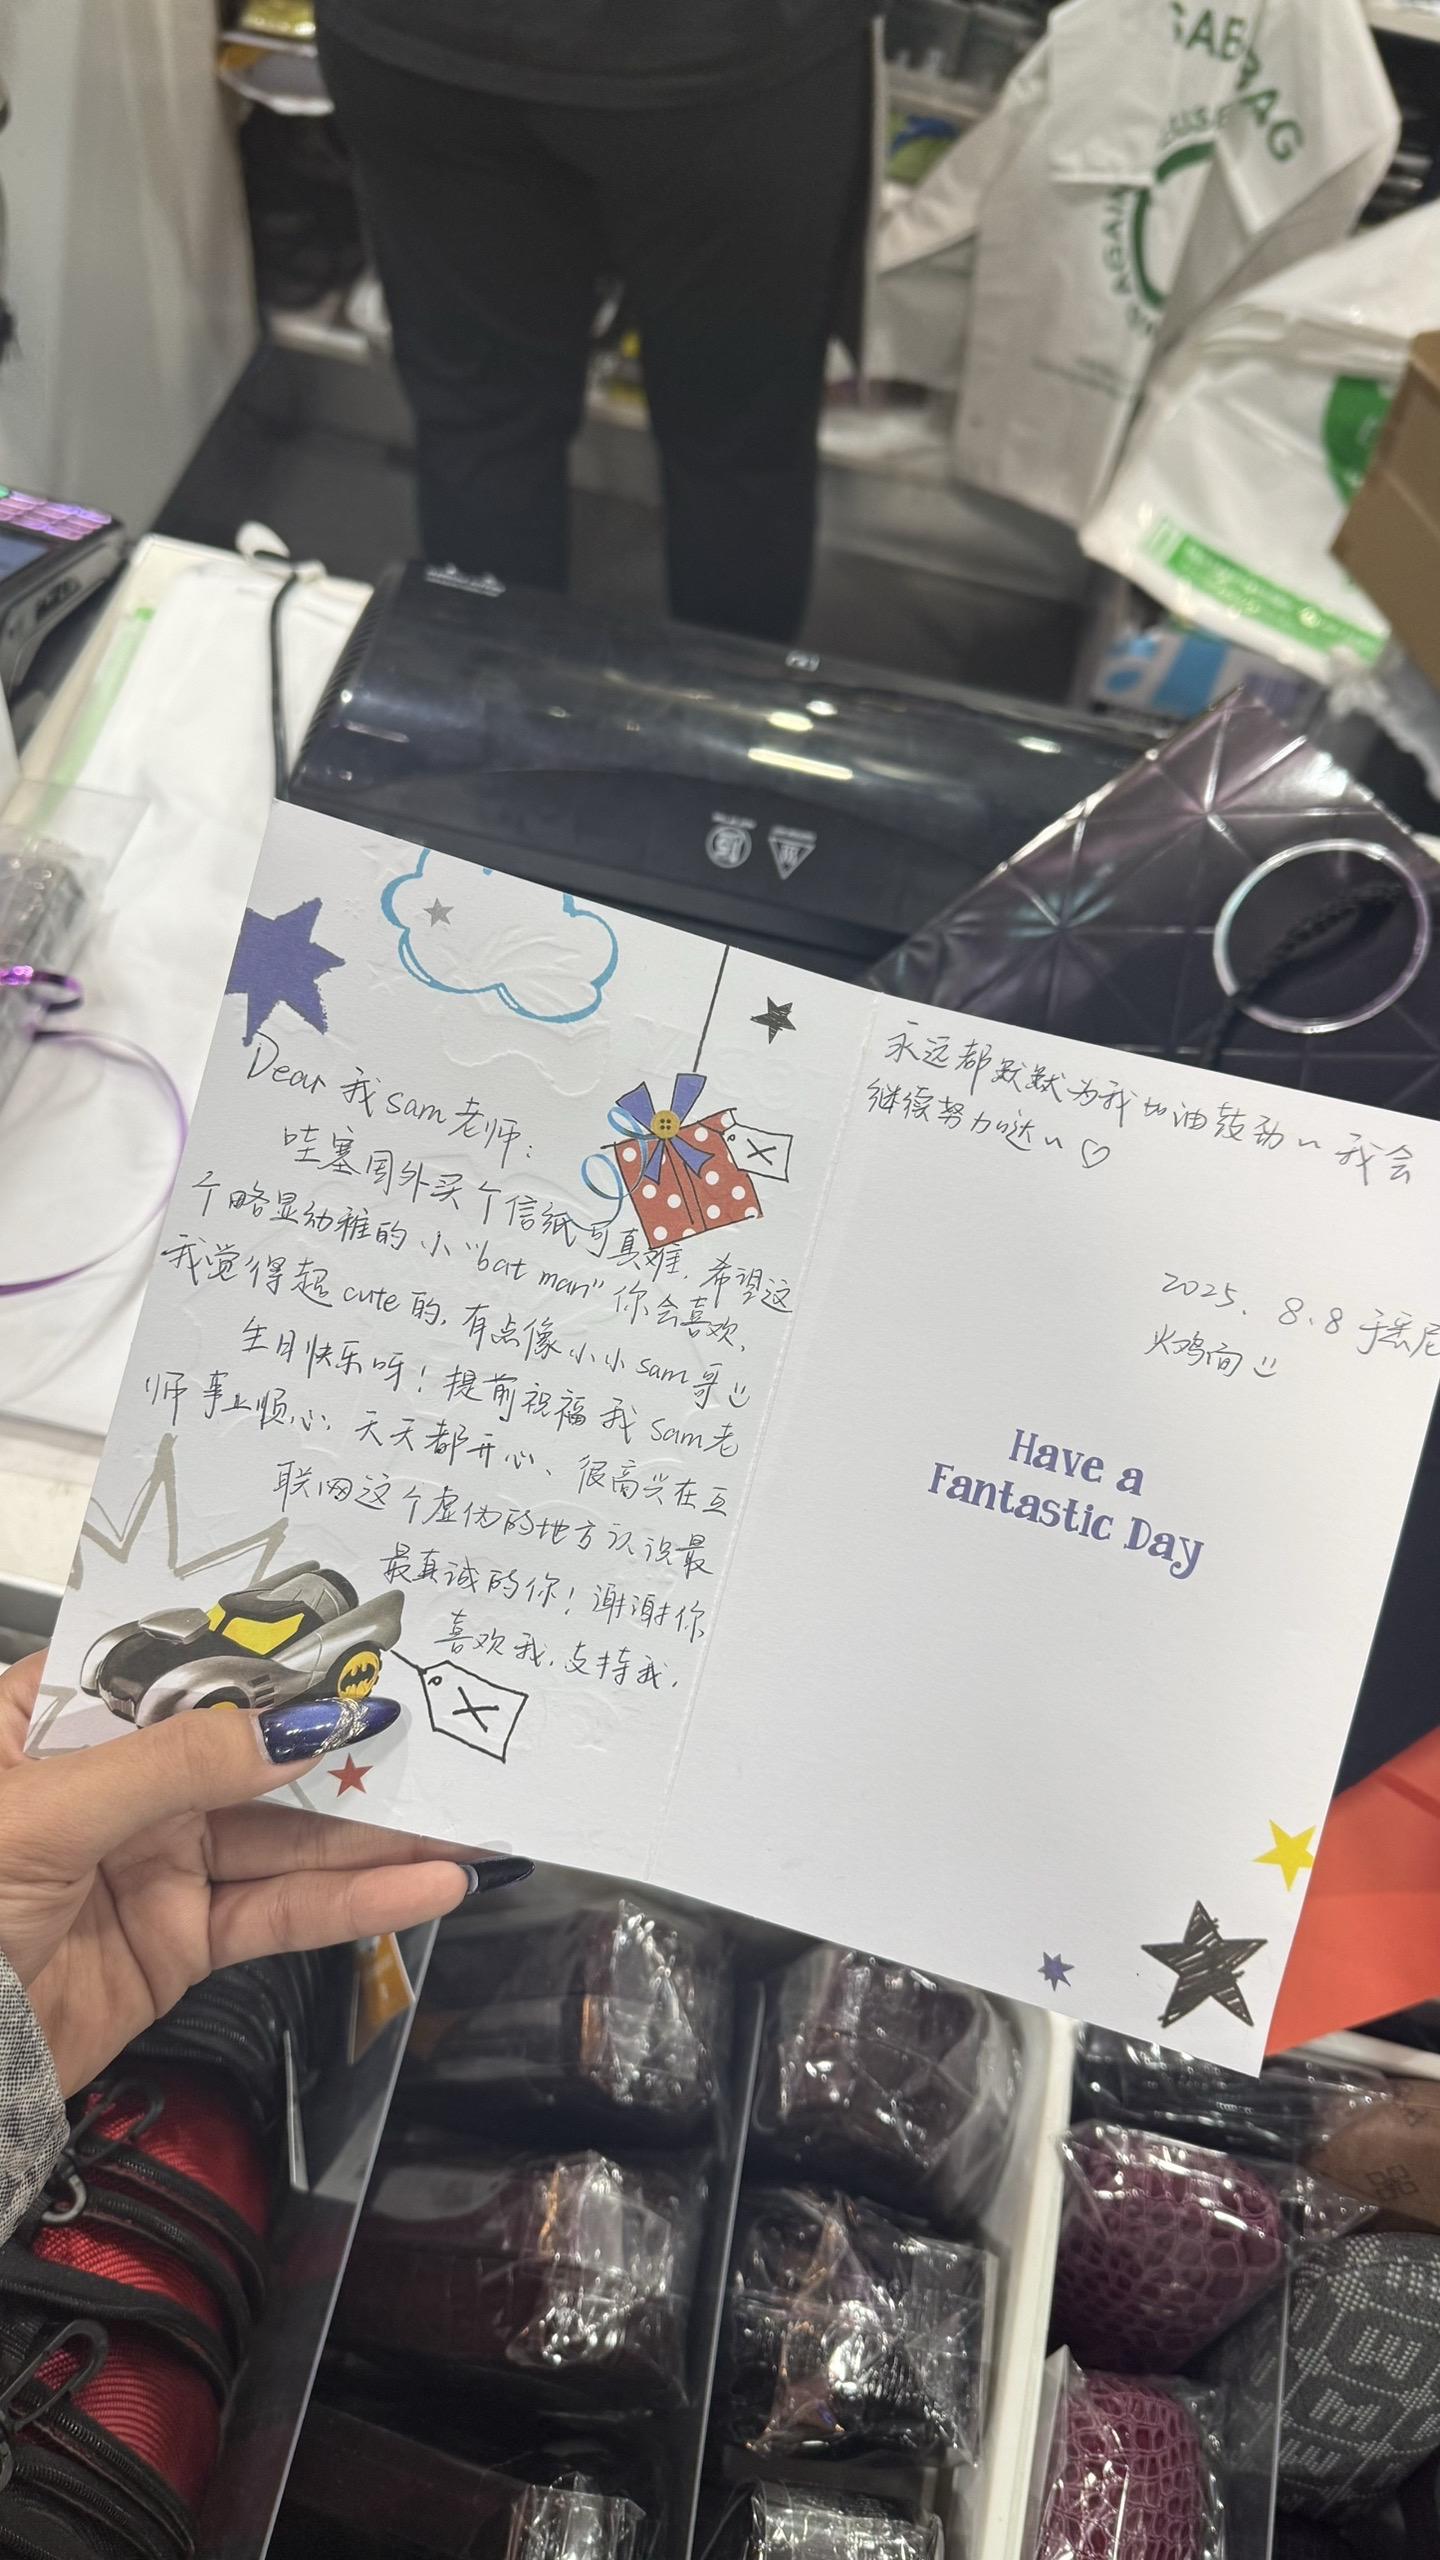 SABABAG
AGAIN
15
Dear 我 sam 老师:
哇塞国外买个信纸可真难, 希望这
个略显幼稚的小"bat man"你会喜欢,
我觉得超 cute 的, 有点像小小 sam 哥
生日快乐呀! 提前祝福我 sam 老
师事业顺心, 天天都开心、很高兴在互
联网这个虚伪的地方认识最
最真诚的你! 谢谢你
喜欢我, 支持我,
X
X
永远都默默为我加油鼓劲~ 我会
继续努力哒~ ♡
2025. 8.8 于悉尼
火鸡面
Have a
Fantastic Day